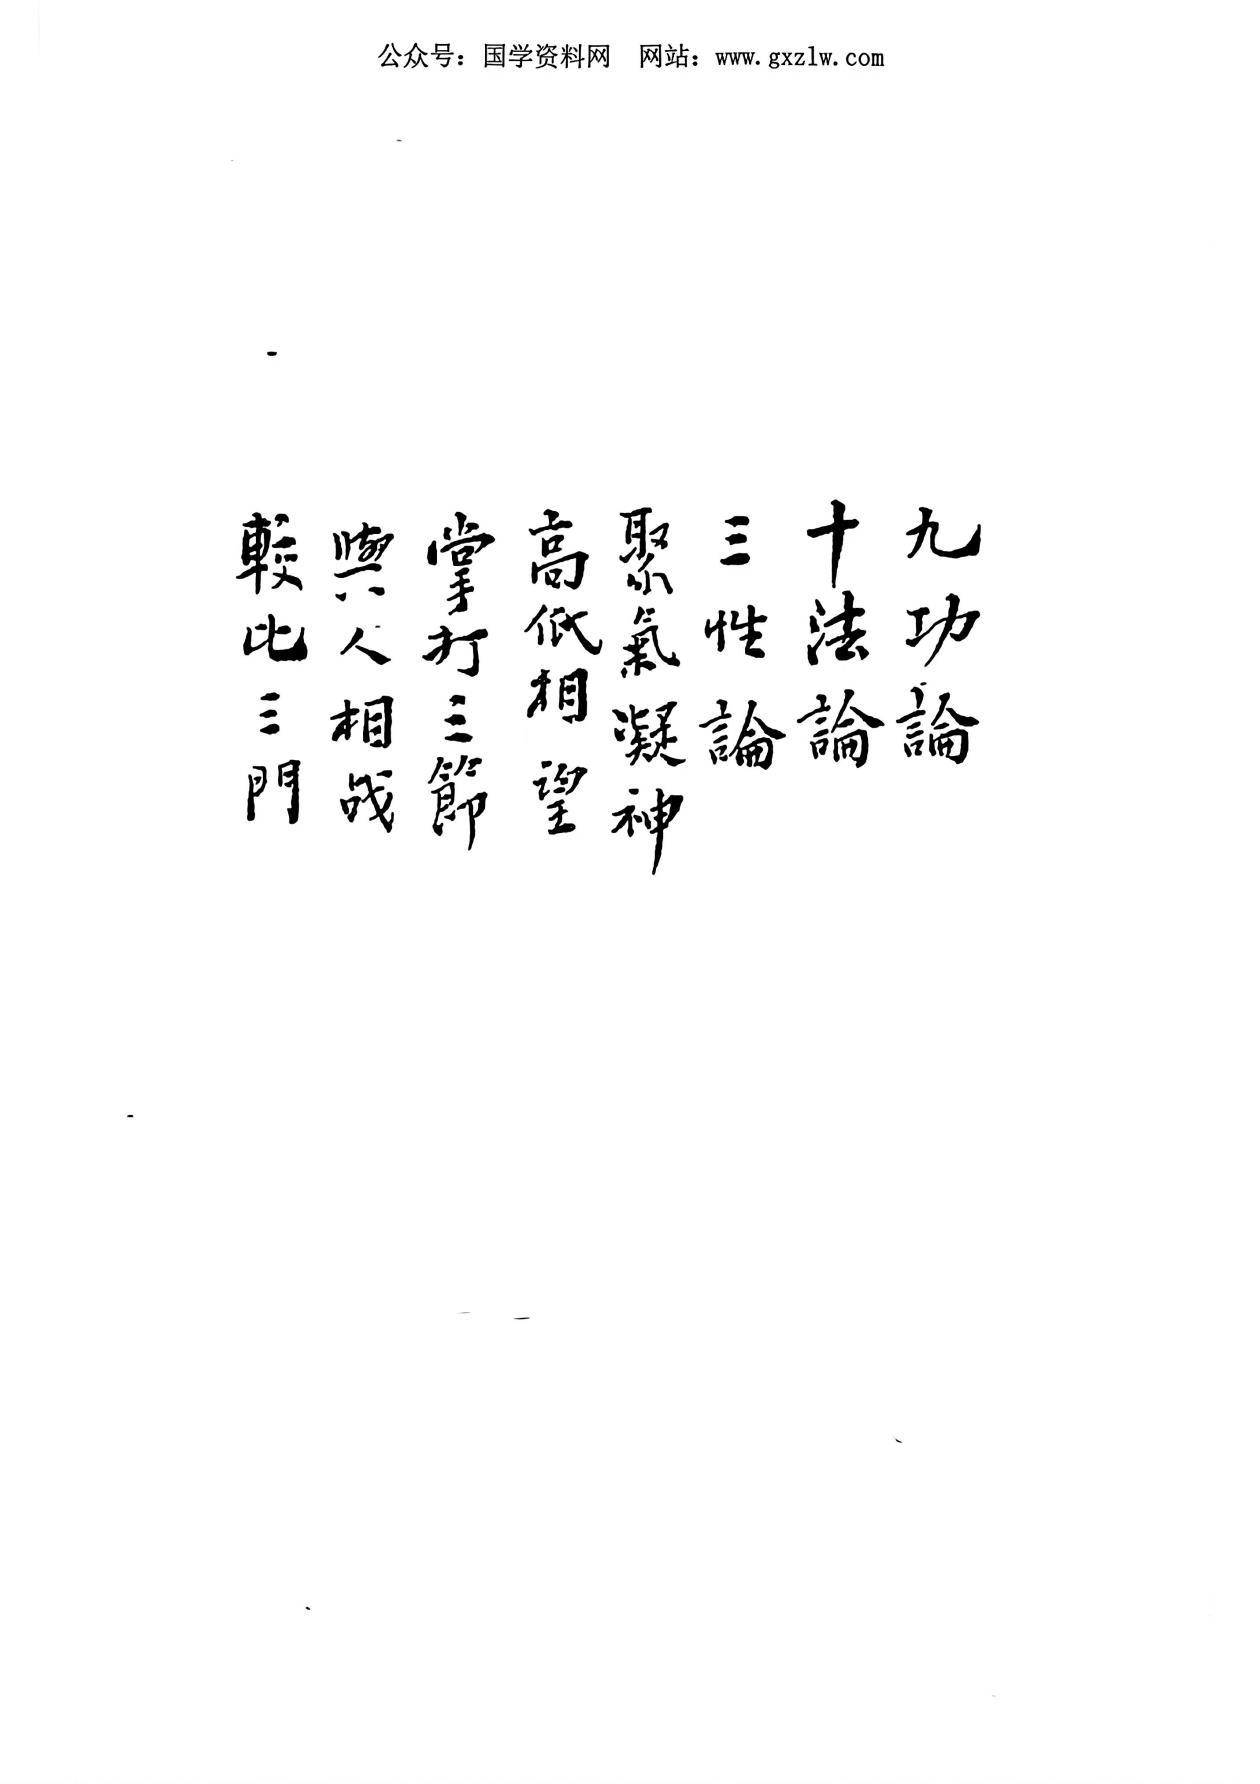 公众号：国学资料网 网站：www.gxzlw.com
九功論
十法論
三性論
聚氣凝神
高低相望
掌打三節
與人相战
較比三門